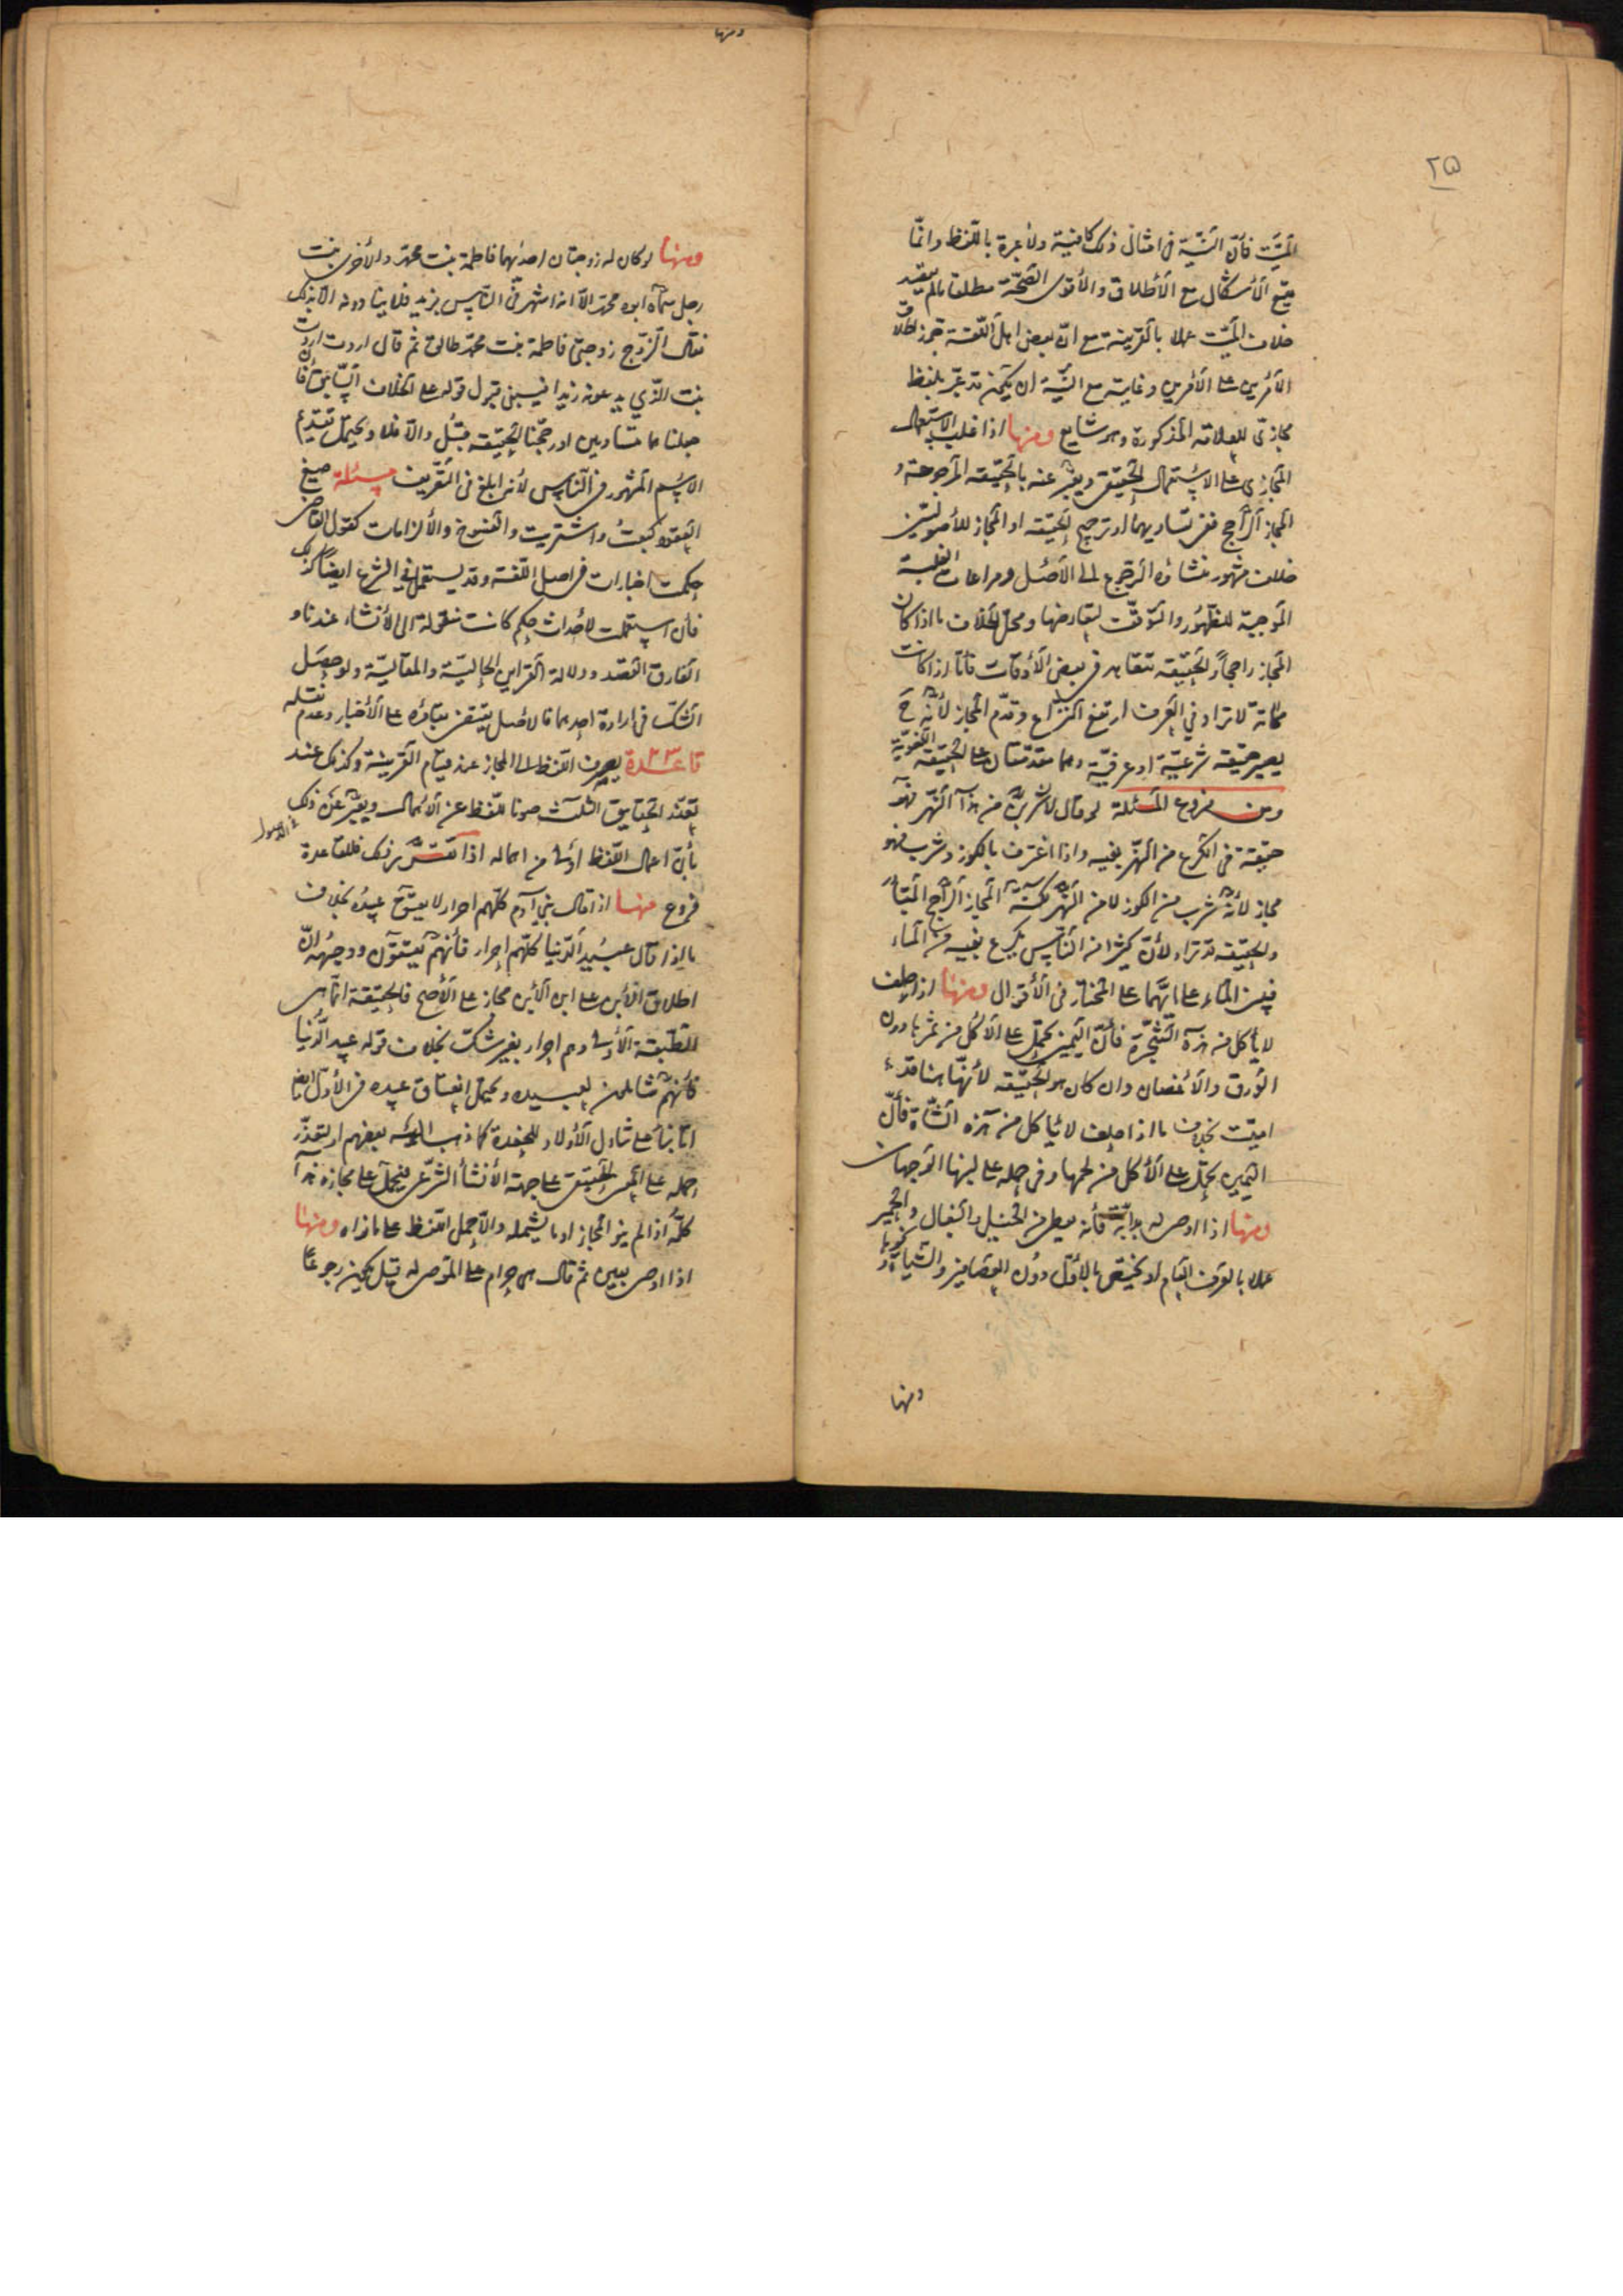 ٢٥
الميّت فأنّ النيّة في امثال ذلك كافية ولا عبرة باللفظ وانّما
يتبع الأشكال مع الأطلاق والأقوى الصحّة مطلقا ما لم يقصد
خلاف الميّت عملا بالقرينة مع انّ بعض اهل اللغة تجوز اطلاق
الأمرين على الأمرين وغايته مع النيّة ان يكون قد عبّر بلفظ
مجازيّ للعلاقة المذكورة وهو شايع ومنها اذا غلب الاستعمال
المجازي على الاستعمال الحقيقي ويعبّر عنه بالحقيقة المرجوحة و
المجاز الراجح ففي تساويهما او ترجيح الحقيقة او المجاز للأصوليّين
خلاف مشهور منشاؤه الرجوع الى الأصل ومراعات الغلبة
الموجبة للظهور والتوقّف لتعارضهما ومحلّ الخلاف ما اذا كان
المجاز راجحاً والحقيقة تتعاهد في بعض الأوقات فأمّا اذا كانت
مماتة لا تراد في العرف ارتفع النزاع وقدّم المجاز لأنّه ح
يصير حقيقة شرعيّة او عرفيّة وهما مقدّمتان على الحقيقة اللغويّة
ومن فروع المسئلة لو قال لأشربنّ من هذا النهر فهو
حقيقة في الكرع من النهر بفيه واذا اغترف بالكوز وشرب فهو
مجاز لأنّه شرب من الكوز لا من النهر لكنّه المجاز الراجح المتبادر
والحقيقة قد تراد لأنّ كثيرا من الناس يكرع بفيه من الماء
فيبني المسئلة على المختار في الأقوال ومنها اذا حلف
لا يأكل من هذه الشجرة فأنّ اليمين تحمل على الأكل من ثمرها دون
الورق والأغصان وان كان هو الحقيقة لأنّها هنا قد
اميتت بخلاف ما اذا حلف لا يأكل من هذه الشاة فأنّ
اليمين تحمل على الأكل من لحمها وفي حمله على لبنها الوجهان
ومنها اذا اوصى له بدابّة فأنّه يعطى من الخيل والبغال والحمير
عملا بالعرف العام او يختص بالأوّل دون العصافير والشياة ونحوها
ومنها
ومنها
ومنها لو كان له زوجتان احديهما فاطمة بنت محمّد والأخرى بنت
رجل سمّاه ابوه محمّد الّا انه اشتهر في الناس بزيد فلا ينادونه الّا بذلك
فقال الزوج زوجتي فاطمة بنت محمّد طالق ثم قال اردت
بنت الذي يدعونه زيدا فيبنى قبول قوله على الخلاف السابق فأن
جعلناهما متساويين او رجّحنا الحقيقة قبل والّا فلا ويحتمل تقديم
الاسم المشهور في الناس لأنه ابلغ في التعريف مسئلة صيغ
العقود كبعت واشتريت والفسوخ والألزامات كقول القاضي
حكمت اخبارات في اصل اللغة وقد يستعمل في الشرع ايضاً كذلك
فأن استعملت لأحداث حكم كانت منقولة الى الأنشاء عندنا و
الفارق القصد ودلالة القراين الحالية والمقاليّة ولو حصل
الشكّ في ارادة احدهما فالأصل يقتضي بقاؤه على الأخبار وعدم نقله
قاعدة يصرف اللفظ الى المجاز عند قيام القرينة وكذلك عند
تعذّر الحقايق الثلث صونا للفظ عن الأهمال ويعبّر عن ذلك
بأنّ اعمال اللفظ اولى من اهماله اذا تقرّر ذلك فللقاعدة
فروع منها اذا قال بني آدم كلّهم احرار لا يعتق عبيده بخلاف
ما اذا قال عبيد الدنيا كلّهم احرار فأنّهم يعتقون ووجهه انّ
اطلاق الأبن على ابن الأبن مجاز على الأصح فالحقيقة انّما هي
للطبقة الأولى وهم احرار بغير شكّ بخلاف قوله عبيد الدنيا
فأنّهم شاملون لعبيده ويحتمل انعتاق عبيده في الأوّل ايضا
امّا بناء على تناول الأولاد للحفدة كما ذهب اليه بعضهم او لتعذّر
حمله على المعنى الحقيقي على جهة الأنشأ الشرعي فيحمل على مجازه هذا
كلّه اذا لم ينو المجاز او ما يشمله والّا حمل اللفظ على ما نواه ومنها
اذا اوصى بعين ثم قال هي حرام على الموصى له قيل يكون رجوعاً